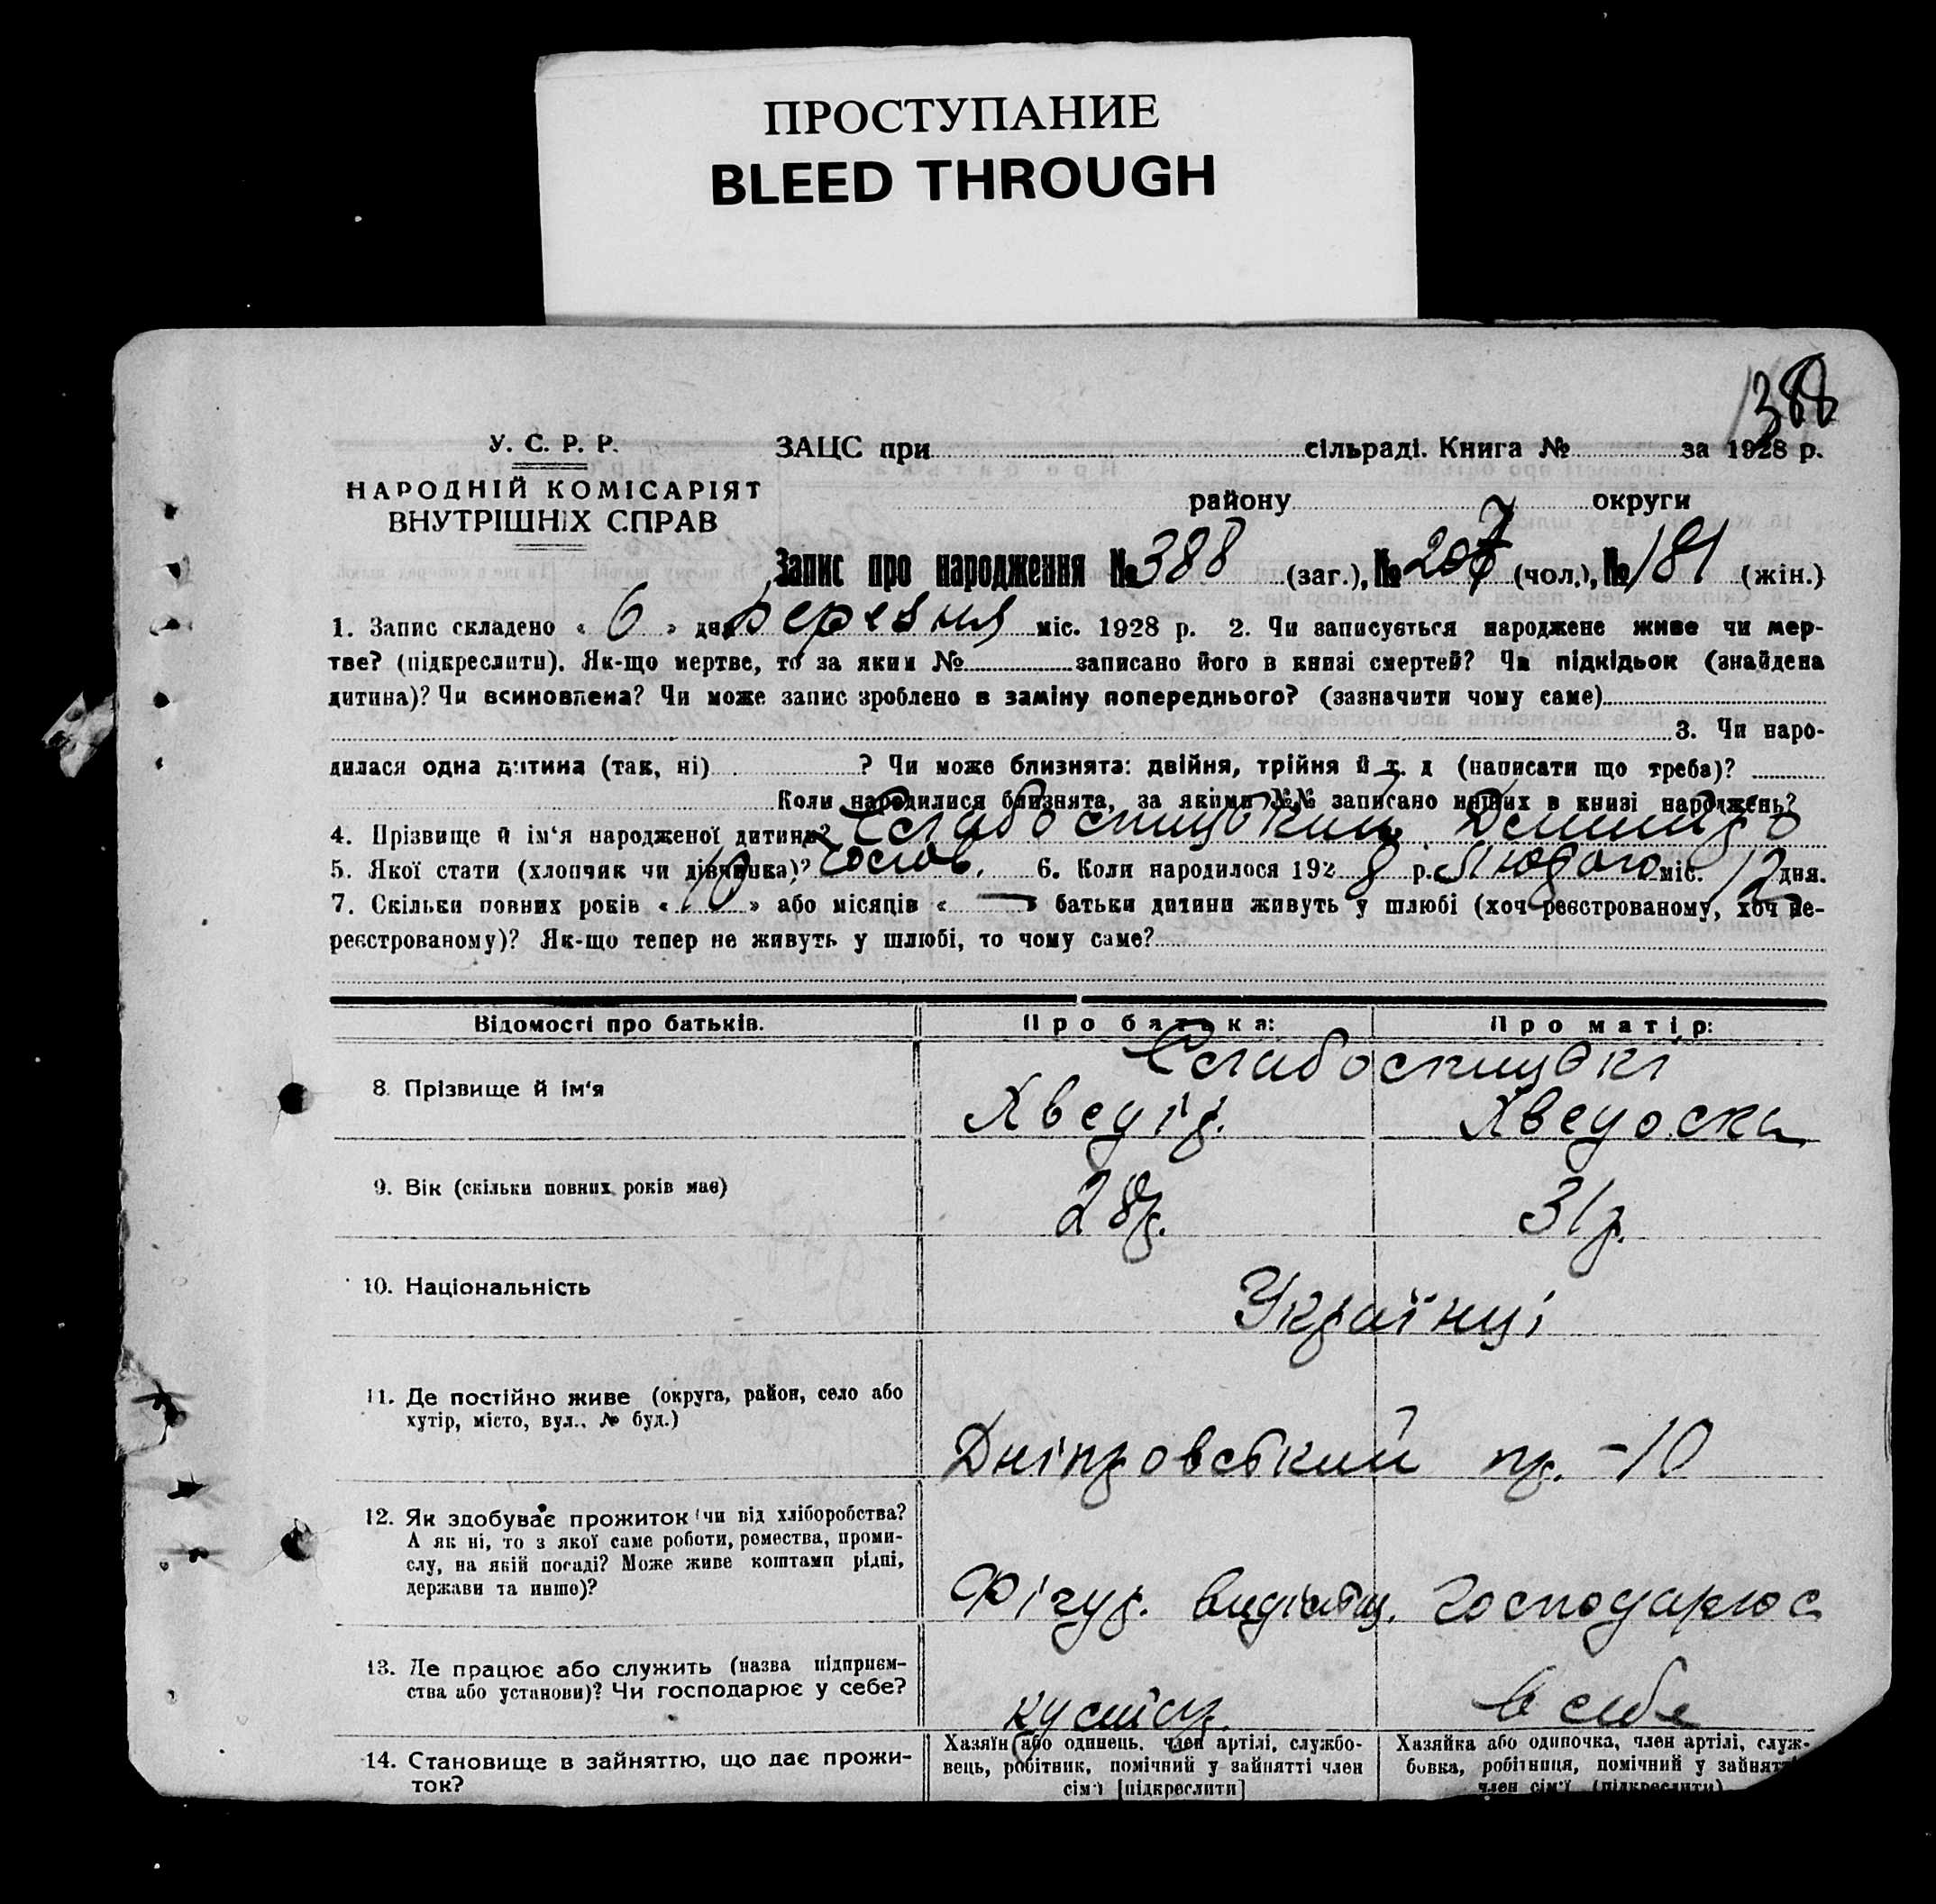 ПРОСТУПАНИЕ
BLEED THROUGH
388
У. С. Р. Р.
ЗАЦС при сільраді. Книга № за 1928 р.
НАРОДНІЙ КОМІСАРІЯТ
ВНУТРІШНІХ СПРАВ
району округи
Запис про народження № 388 (заг.), № 207 (чол.), № 181 (жін.)
1. Запис складено « 6 » дня березня міс. 1928 р. 2. Чи записується народжене живе чи мер-
тве? (підкреслити). Як-що мертве, то за яким № записано його в книзі смертей? Чи підкідьок (знайдена
дитина)? Чи всиновлена? Чи може запис зроблено в заміну попереднього? (зазначити чому саме)
3. Чи наро-
дилася одна дитина (так, ні) ? Чи може близнята: двійня, трійня й т. д (написати що треба)?
Коли народилися близнята, за якими №№ записано инших в книзі народжень?
4. Прізвище й ім'я народженої дитини? Слабоспицький Дмитро
5. Якої стати (хлопчик чи дівчинка)? чолов. 6. Коли народилося 1928 р. Лютого міс. 12 дня.
7. Скільки повних років « 10 » або місяців « — » батьки дитини живуть у шлюбі (хоч реєстрованому, хоч не-
реєстрованому)? Як-що тепер не живуть у шлюбі, то чому саме?
Відомості про батьків. Про батька: Про матір:
Слабоспицькі
8. Прізвище й ім'я Хведір. Хведоска
9. Вік (скільки повних років має) 28р. 31р.
10. Національність Українці
11. Де постійно живе (округа, район, село або
хутір, місто, вул., № буд.)
Дніпровський пр. -10
12. Як здобуває прожиток (чи від хліборобства?
А як ні, то з якої саме роботи, ремества, проми-
слу, на якій посаді? Може живе коштами рідні,
держави та инше)?
Фігур. Господарює
13. Де працює або служить (назва підприєм-
ства або установи)? Чи господарює у себе?
кустар. в себе
14. Становище в зайняттю, що дає прожи-
ток?
Хазяїн або одинець, член артілі, службо-
вець, робітник, помічний у зайнятті член
сім'ї [підкреслити]
Хазяйка або одиночка, член артілі, служ-
бовка, робітниця, помічний у зайнятті
член сім'ї (підкреслити)